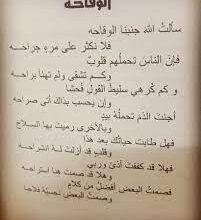 الوقاحة
سألتُ اللهَ جنبنا الوقاحه
فلا نكثر على مرءٍ جراحه
فإنّ الناسَ تحملهم قلوبٌ
وكم تشقى ولم تهنأ براحه
و كم كُرهي سليط القول فُحشا
وإن يحسب بذاك أتى صراحه
أجئتَ الذم تحملهُ بيدٍ
وبالأخرى رميتَ بها السلاح
فهل طابت حياتك بعد هذا
وقلبٍ قد أزلت لهُ انشراحه
فهلا قد كففت أذىً وربي
وهلا قد صمت هنا استراحه
فصمتُ البعض أفضلُ من كلامٍ
وصمتُ البعض فلاحا